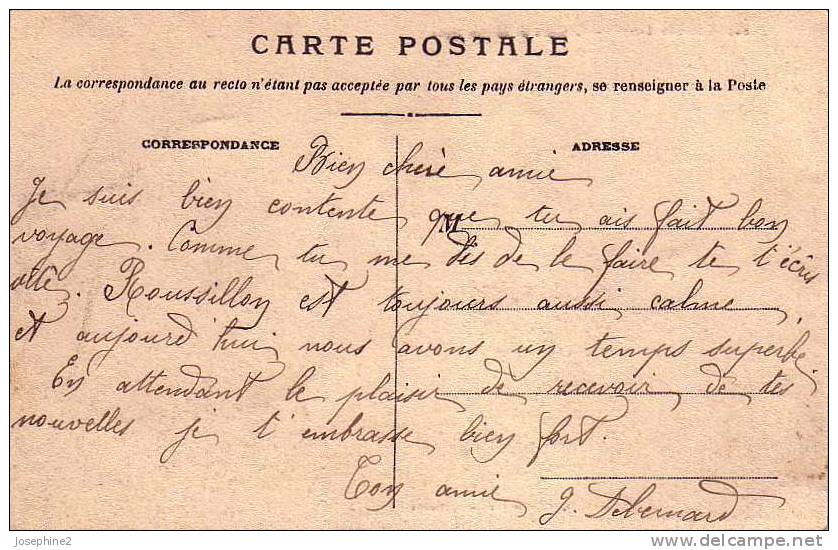 CARTE POSTALE
La correspondance au recto n'étant pas acceptée par tous les pays étrangers, se renseigner à la Poste
CORRESPONDANCE
ADRESSE
Bien chère amie
Je suis bien contente que tu ais fait bon
M
voyage. Comme tu me dis de le faire je t'écris
. Roussillon est toujours aussi calme,
et aujourd'hui nous avons un temps superbe.
En attendant le plaisir de recevoir de tes
nouvelles je t'embrasse bien fort.
Ton amie
J. Debernard
Josephine2
www.delcampe.net